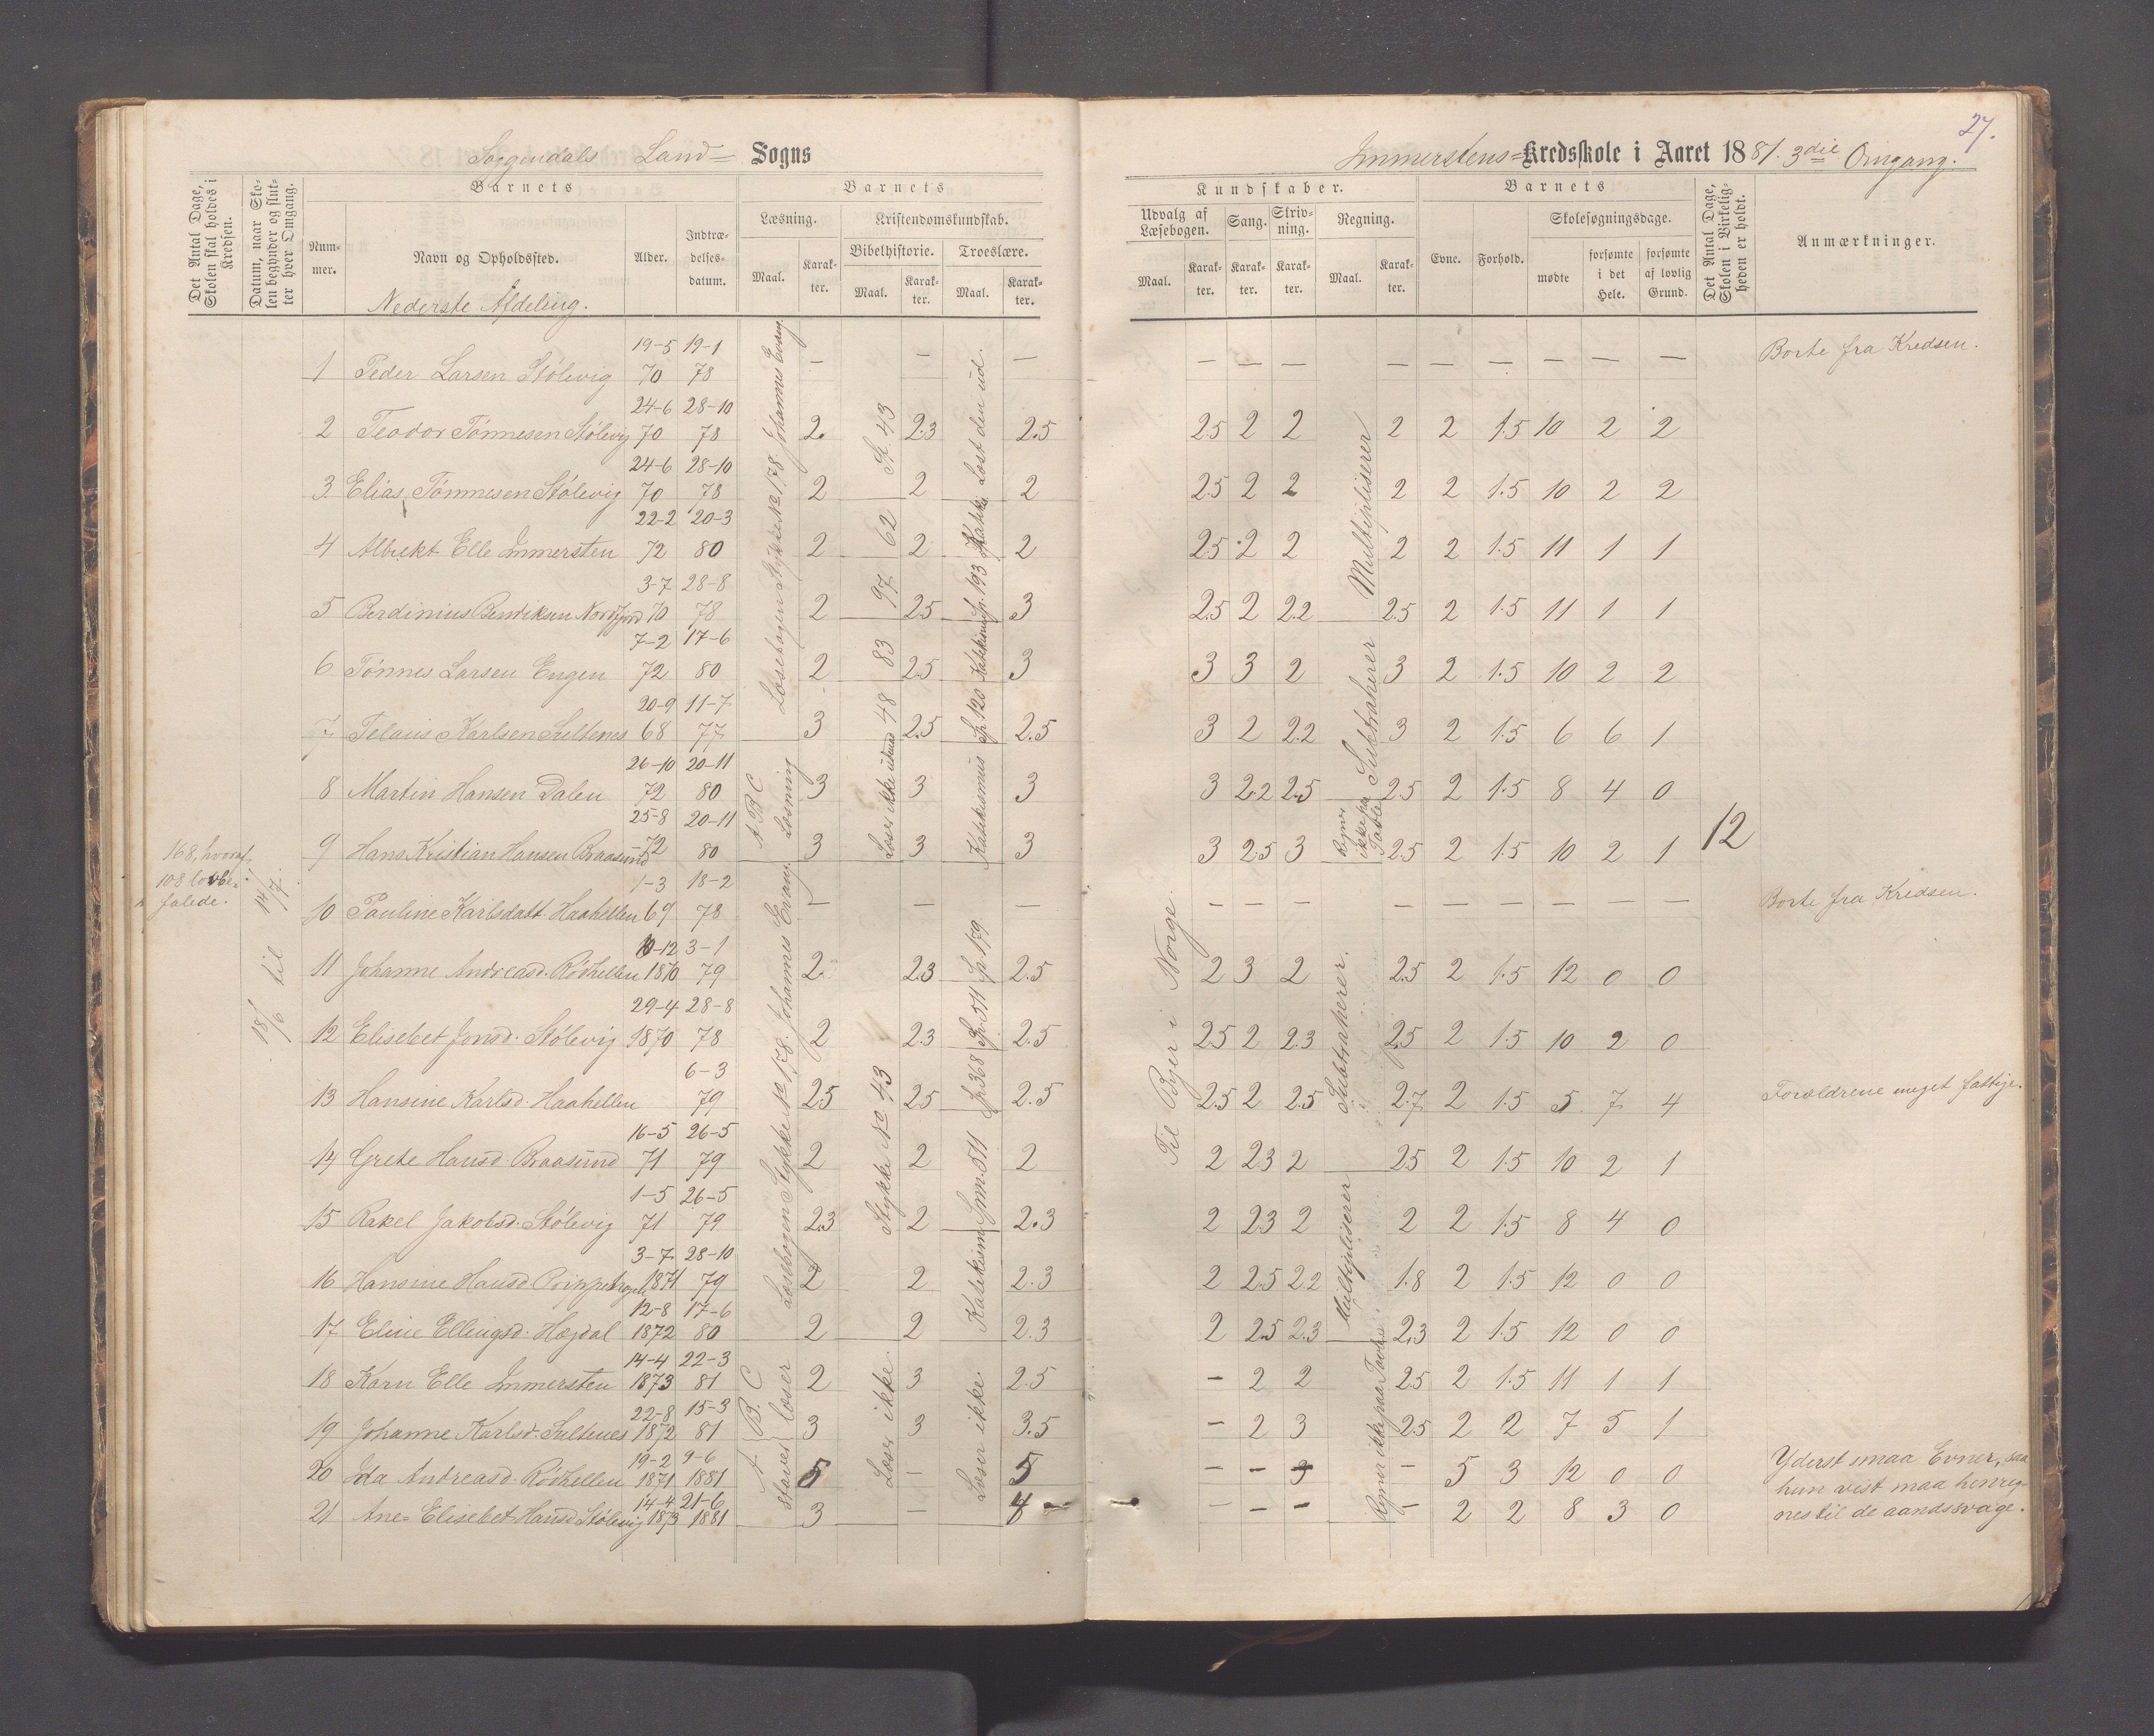 27.
Soggendals Land= Sogns
Immerstens=Kredsskole i Aaret 1881. 3die Omgang.
Det Antal Dage, Skolen skal holdes i Kredsen.
Datum, naar Skolen begynder og slutter hver Omgang.
Barnets
Nummer.
Navn og Opholdssted.
Alder.
Indtrædelsesdatum.
Barnets
Læsning.
Maal.
Karakter.
Kristendomskundskab.
Bibelhistorie.
Maal.
Karakter.
Troeslære.
Maal.
Karakter.
Kundskaber.
Udvalg af Læsebogen.
Maal.
Karakter.
Sang.
Karakter.
Skrivning.
Karakter.
Regning.
Maal.
Karakter.
Barnets
Evne.
Forhold.
Skolesøgningsdage.
mødte
forsømte i det Hele.
forsømte af lovlig Grund.
Det Antal Dage, Skolen i Virkeligheden er holdt.
Anmærkninger.
Nederste Afdeling.
1 Peder Larsen Stölevig 19-5 70 19-1 78 — — — — — — — — — — — — Borte fra Kredsen.
2 Teodor Tönnesen Stölevig 24-6 70 28-10 78 2. 2.3 2.5 2.5 2 2 2 2 1.5 10 2 2
3 Elias Tönnesen Stölevig 24-6 70 28-10 78 2 2 2 2.5 2 2 2 2 1.5 10 2 2
4 Albrekt Elle Immersten 22-2 72 20-3 80 2 2 2 2.5 2 2 2 2 1.5 11 1 1
5 Berdinius Bendiksen Nordfjord 3-7 70 28-8 78 2 2.5 3 2.5 2 2.2 2.5 2 1.5 11 1 1
6 Tönnes Larsen Engen 7-2 72 17-6 80 2 2.5 3 3 3 2 3 2 1.5 10 2 2
7 Telaus Karlsen Sultenes 20-9 68 11-7 77 3 2.5 2.5 3 2 2.2 3 2 1.5 6 6 1
8 Martin Hansen Dalen 26-10 72 20-11 80 3 3 3 3 2.2 2.5 2.5 2 1.5 8 4 0
9 Hans Kristian Hansen Braasund 25-8 72 20-11 80 3 3 3 3 2.5 3 2.5 2 1.5 10 2 1
12
168, hvoraf 108 lovbefalede.
18/6 til 14/7.
10 Pauline Karlsdatt. Haahellen 1-3 69 18-2 78 — — — — — — — — — — — — Borte fra Kredsen.
11 Johanne Andreasd. Rödhellen 10-12 1870 3-1 79 2. 2.3 2.5 2 3 2 2.5 2 1.5 12 0 0
12 Elisebet Jonsd. Stölevig 29-4 1870 28-8 78 2 2.3 2.5 2.5 2 2.3 2.5 2 1.5 10 2 0
13 Hansine Karlsd. Haahellen 6-3 79 2.5 2.5 2.5 2.5 2 2.5 2.7 2 1.5 5 7 4 Forældrene meget fattige.
14 Grete Hansd. Braasund 16-5 71 26-5 79 2 2 2 2 2.3 2 2.5 2 1.5 10 2 1
15 Rakel Jakobsd. Stölevig 1-5 71 26-5 79 2.3 2 2.3 2 2.3 2 2 2 1.5 8 4 0
16 Hansine Hansd. 3-7 1871 28-10 79 2 2 2.3 2 2.5 2.2 1.8 2 1.5 12 0 0
17 Eline Ellingsd. Hægdal 12-8 1872 17-6 80 2 2 2.3 2 2.5 2.3 2.3 2 1.5 12 0 0
18 Karn Elle Immersten 14-4 1873 22-3 81 2 3 2.5 - 2 2 2.5 2 1.5 11 1 1
19 Johanne Karlsd. Sultenes 22-8 1872 15-3 81 3 3 3.5 - 2 3 2.5 2 2 7 5 1
20 Ida Andreasd. Rödhellen 19-2 1871 9-6 1881 5 — 5 - - 3 - 5 3 12 0 0 Yderst smaa Evner, saa hun vist maa henregnes til de aandssvage.
21 Ane Elisebet Hansd Stölevig 14-4 1873 21-6 1881 3 — 4 - - - - 2 2 8 3 0
Læsebogen Stykke No 178. Johannes Evang.
A B C Læsning
Læsebogen Stykke No 178. Johannes Evang.
A. B. C staver læser
St. 43
62
97
83
48
Læser ikke udenad
Stykke No 43
Læser ikke.
Læst den ud.
Sp. 193 Katek.
Sp 120
Katekismus
Sp 179
Sp. 511
Sp 368
Katekism Spm. 511
Læser ikke.
Til Byer i Norge.
Multipliserer
Subtraherer
Regner ikke paa Tavle
Subtraherer.
Multipliserer
Regner ikke paa Tavle.